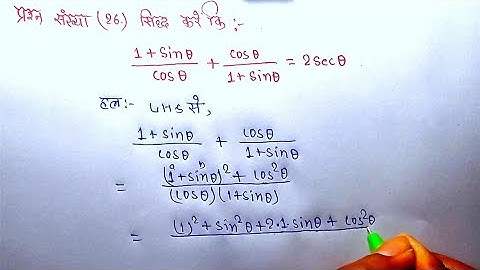 प्रश्न संख्या (26.) सिद्ध करें कि :-
1+sinθ/cosθ + cosθ/1+sinθ = 2secθ
हल:- LHS से,
1+sinθ/cosθ + cosθ/1+sinθ
= (1+sinθ)² + cos²θ/(cosθ)(1+sinθ)
a b
= (1)² + sin²θ+2·1·sinθ + cos²θ